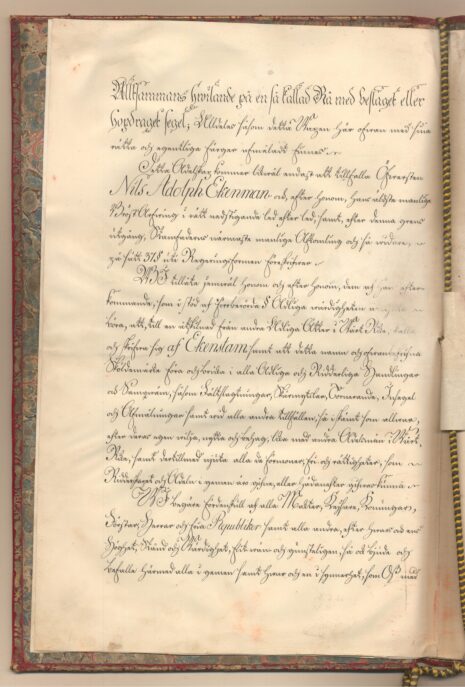 Allt sammans hvilande på en så kallad Rå med beslaget eller
hopdraget segel; Alldeles såsom detta Wapen här ofvan med sina
rätta och egentliga färger afmåladt finnes.
Detta Adelskap kommer likväl endast att tillfalla Öfversten
Nils Adolph Ekenman och, efter honom, hans äldste manlige
Bröst Arfvinge i rätt nedstigande led efter led, samt, efter denna grens
utgång, Stamfadrens närmaste manlige Afkomling och så vidare,
på sätt 37 § uti Regeringsformen föreskrifver.
Wi tillåta jemväl honom och efter honom, den
kommande, som i stöd af förberörde § Adliga värdigheten
föra, att, till en åtskilnad ifrån andra Adliga Ätter i Wårt Rike, kalla
och skrifva sig af Ekenstam samt att detta namn och ofvan
Sköldemärke föra och bruka i alla Adliga och Ridderliga Handlingar
och Samqväm, såsom Fältslagtningar, Stormningar, Tornerande, Insegel
och Afmålningar samt vid alla andra tillfällen, så i skämt som allvar,
efter deras egen vilja, nytta och behag, lika med andra Adelsmän i Wårt
Rike, samt dertill med njuta alla de förmoner, fri och rättigheter, som
Ridderskapet och Adeln i gemen äro gifne, eller hädanefter gifvas kunna
Wi begäre fördenskull af alla Makter, Kejsare, Konungar,
Förstar, Herrar och fria Republiker samt alla andra, efter hvars och ens
Höghet, Stånd och Wärdighet, så ock bjude och
befalle härmed alla i gemen samt hvar och en i synnerhet, som Oss med